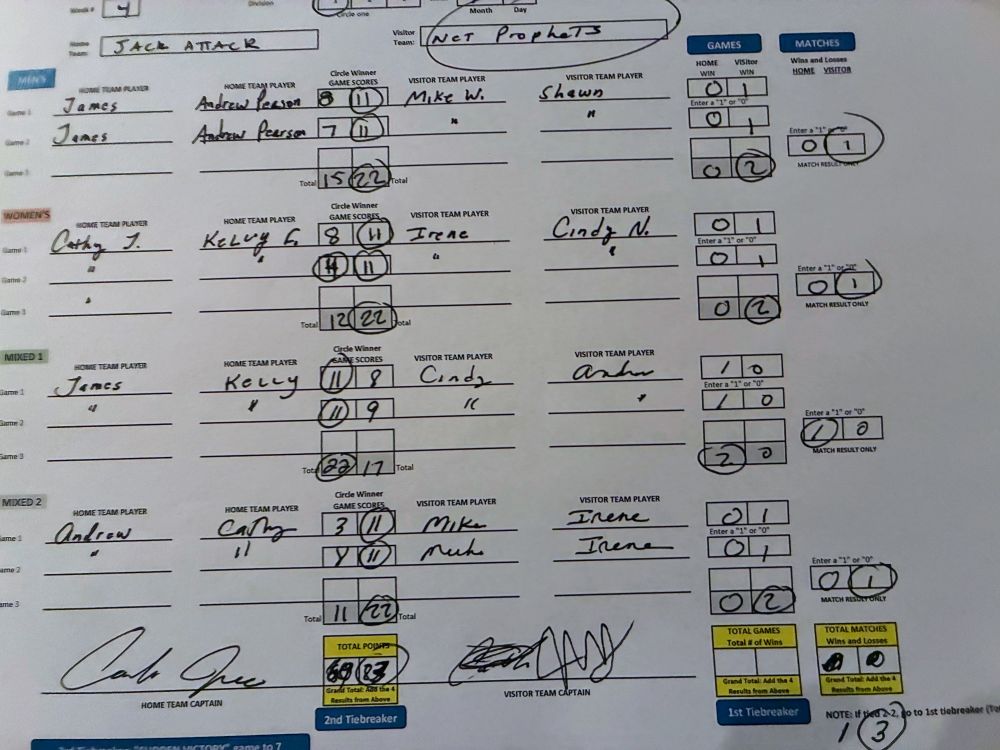 Week # 4 Division Circle one Month Day
Home Team: JACK ATTACK Visitor Team: NET PROPHETS
GAMES MATCHES
MEN'S HOME TEAM PLAYER HOME TEAM PLAYER Circle Winner GAME SCORES VISITOR TEAM PLAYER VISITOR TEAM PLAYER HOME WIN Visitor WIN Wins and Losses HOME VISITOR
Game 1 James Andrew Pearson 8 11 Mike W. Shawn 0 1
Enter a "1" or "0"
Game 2 James Andrew Pearson 7 11 " " 0 1
Enter a "1" or "0"
0 1
Game 3
Total 15 22 Total 0 2 MATCH RESULT ONLY
WOMEN'S HOME TEAM PLAYER HOME TEAM PLAYER Circle Winner GAME SCORES VISITOR TEAM PLAYER VISITOR TEAM PLAYER
Game 1 Cathy J. Kelly 8 11 Irene Cindy N. 0 1
Enter a "1" or "0"
Game 2 " " 4 11 " " 0 1
Enter a "1" or "0"
0 1
Game 3 "
Total 12 22 Total 0 2 MATCH RESULT ONLY
MIXED 1 HOME TEAM PLAYER HOME TEAM PLAYER Circle Winner GAME SCORES VISITOR TEAM PLAYER VISITOR TEAM PLAYER
Game 1 James Kelly 11 8 Cindy 1 0
Enter a "1" or "0"
Game 2 " " 11 9 " " 1 0
Enter a "1" or "0"
1 0
Game 3
Total 22 17 Total 2 0 MATCH RESULT ONLY
MIXED 2 HOME TEAM PLAYER HOME TEAM PLAYER Circle Winner GAME SCORES VISITOR TEAM PLAYER VISITOR TEAM PLAYER
Game 1 Andrew Cathy 3 11 Mike Irene 0 1
Enter a "1" or "0"
Game 2 " " 11 Irene 0 1
Enter a "1" or "0"
0 1
Game 3
Total 11 22 0 2 MATCH RESULT ONLY
TOTAL POINTS TOTAL GAMES Total # of Wins TOTAL MATCHES Wins and Losses
Grand Total: Add the 4 Results from Above Grand Total: Add the 4 Results from Above Grand Total: Add the 4 Results from Above
HOME TEAM CAPTAIN VISITOR TEAM CAPTAIN
2nd Tiebreaker 1st Tiebreaker NOTE: If tied 2-2, go to 1st tiebreaker
1 3
"SUDDEN VICTORY" game to 7